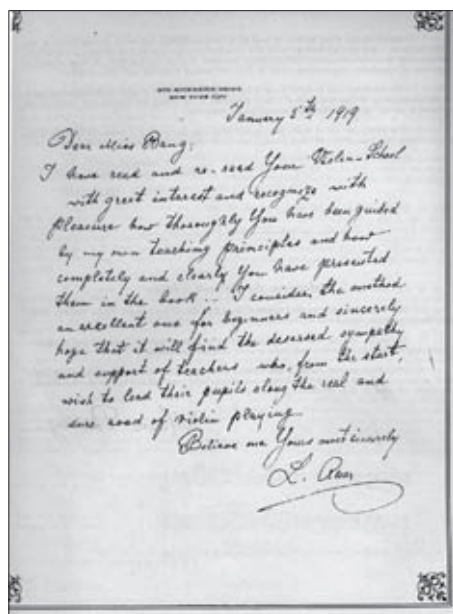 NEW YORK CITY
January 5th 1919
Dear Miss Bang:
I have read and re-read Your Violin-School
with great interest and recognize with
pleasure how thoroughly You have been guided
by my own teaching principles and how
completely and clearly You have presented
them in the book!. I consider the method
an excellent one for beginners and sincerely
hope that it will find the deserved sympathy
and support of teachers who, from the start,
wish to lead their pupils along the real and
sure road of violin playing.
Believe me Yours most sincerely
L. Auer